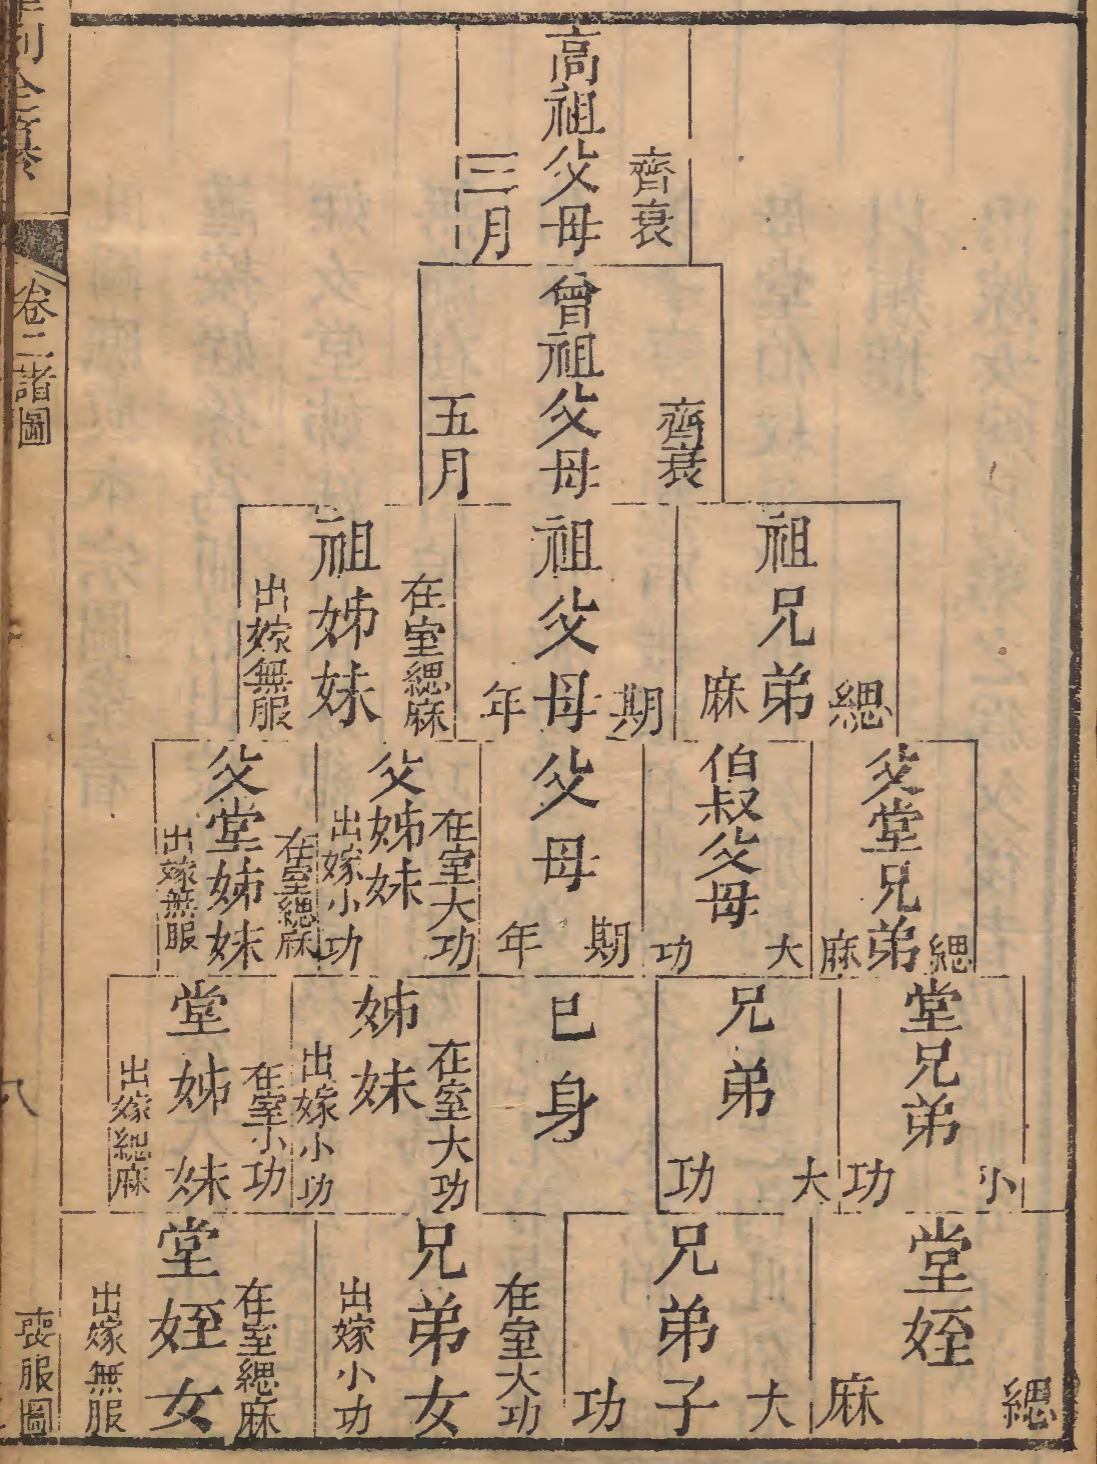 高祖父母
齊衰
三月
曾祖父母
齊衰
五月
祖兄弟
緦
麻
祖父母
期
年
祖姊妹
在室緦麻
出嫁無服
父堂兄弟
緦
麻
伯叔父母
大
功
父母
期
年
父姊妹
在室大功
出嫁小功
父堂姊妹
在室緦麻
出嫁無服
堂兄弟
小
功
兄弟
大
功
已身
姊妹
在室大功
出嫁小功
堂姊妹
在室小功
出嫁緦麻
堂姪
緦
麻
兄弟子
大
功
兄弟女
在室大功
出嫁小功
堂姪女
在室緦麻
出嫁無服
卷二諸圖
八
喪服圖